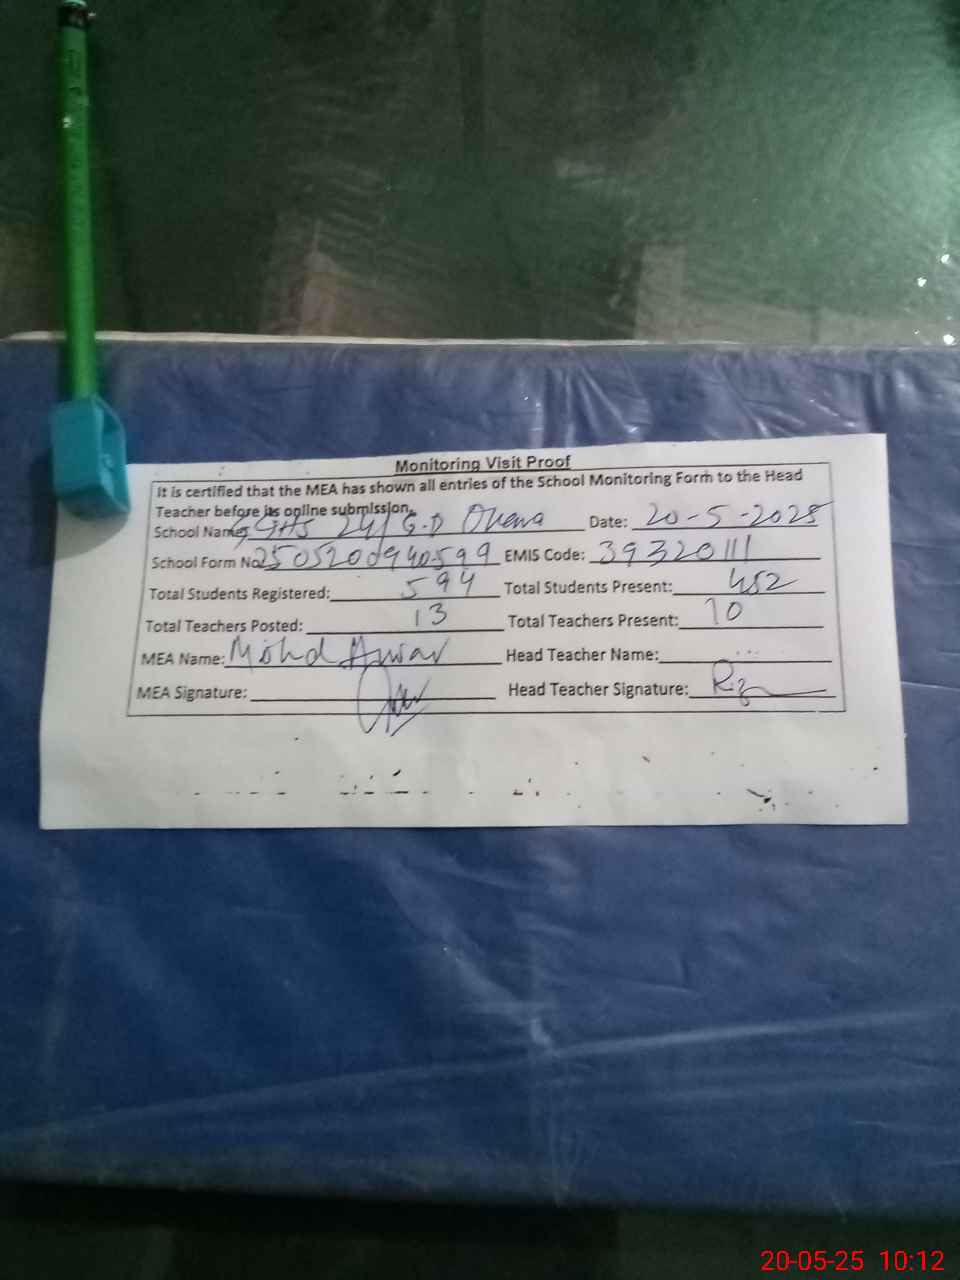 Monitoring Visit Proof
It is certified that the MEA has shown all entries of the School Monitoring Form to the Head
Teacher before its online submission.
School Name: GGHS 24/G-D Date: 20-5-2025
School Form No. 250520094059 9 EMIS Code: 39320111
Total Students Registered: 594 Total Students Present: 452
Total Teachers Posted: 13 Total Teachers Present: 10
MEA Name: Mohd Anwar Head Teacher Name:
MEA Signature: Head Teacher Signature:
20-05-25 10:12